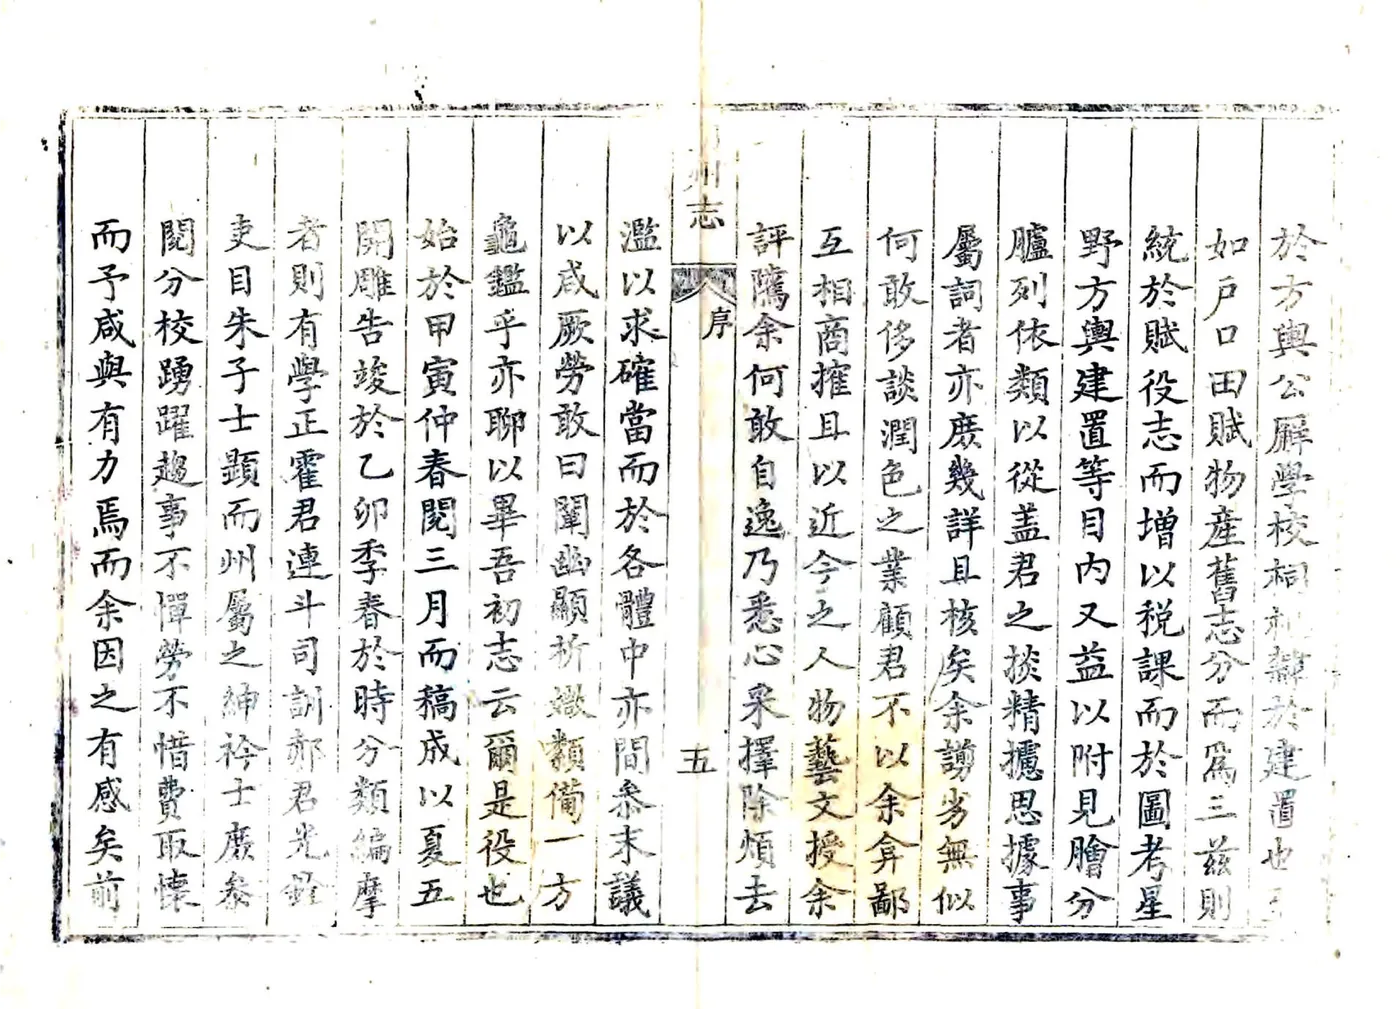 於方輿公廨學校祠祀隸於建置也至
如戶口田賦物產舊志分而爲三兹則
統於賦役志而增以税課而於圖考星
野方輿建置等目内又益以附見臚分
臚列依類以從盖君之掞精攄思據事
屬詞者亦庻幾詳且核矣余謭劣無似
何敢侈談潤色之業顧君不以余弇鄙
互相商搉且以近今之人物藝文授余
評隲余何敢自逸乃悉心釆擇除煩去
州志
序
五
濫以求確當而於各體中亦間叅末議
以成厥勞敢曰闡幽顯析媺纇備一方
龜鑑乎亦聊以畢吾初志云爾是役也
始於甲寅仲春閱三月而稿成以夏五
開雕告竣於乙卯季春於時分類編摩
者則有學正霍君連斗司訓郝君光銓
吏目朱子士顯而州屬之紳衿士廣叅
閱分校踴躍趨事不憚勞不惜費取懐
而予咸與有力焉而余因之有感矣前